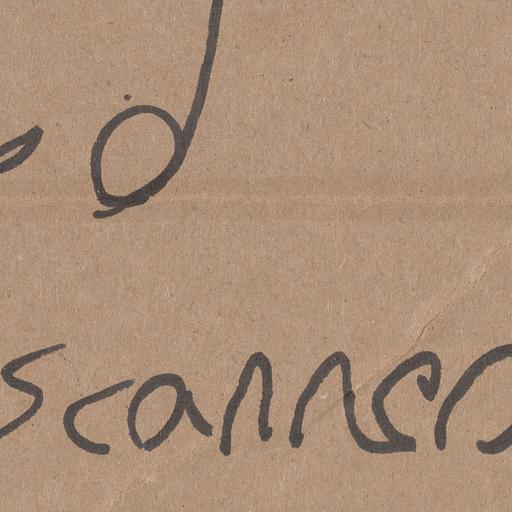 d
scanner